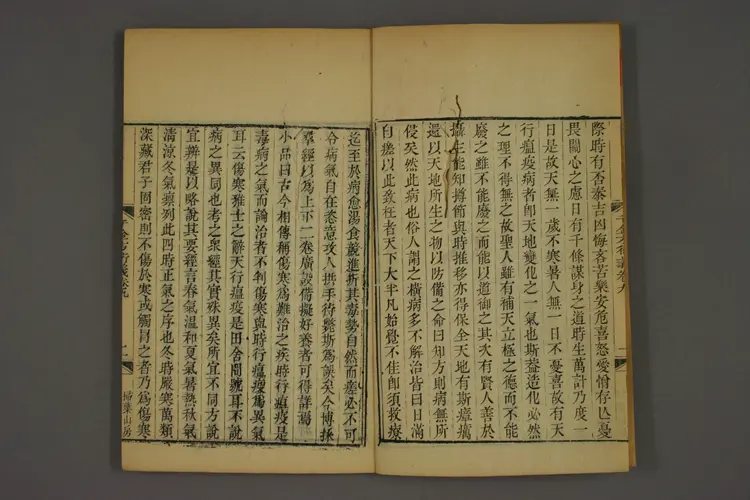 際時有否泰吉凶悔吝苦樂安危喜怒愛憎存亡憂
畏關心之慮日有千條謀身之道時生萬計乃度一
日是故天無一歲不寒暑人無一日不憂喜故有天
行瘟疫病者即天地變化之一氣也斯蓋造化必然
之理不得無之故聖人雖有補天立極之德而不能
廢之雖不能廢之而能以道御之其次有賢人善於
攝生能知撙節與時推移亦得保全天地有斯瘴癘
還以天地所生之物以防備之命曰知方則病無所
侵矣然此病也俗人謂之橫病多不解治皆曰日滿
自瘥以此致枉者天下大半凡始覺不佳即須救療
迄至於病愈湯食競進折其毒勢自然而瘥必不可
令病氣自在恣意攻人拱手待斃斯為誤矣今博採
羣經以為上下二卷廣設備擬好養者可得詳焉
小品曰古今相傳稱傷寒為難治之疾時行瘟疫是
毒病之氣而論治者不判傷寒與時行瘟疫為異氣
耳云傷寒雅士之辭天行瘟疫是田舍間號耳不說
病之異同也考之衆經其實殊異矣所宜不同方說
宜辨是以略說其要經言春氣溫和夏氣暑熱秋氣
清涼冬氣凜冽此四時正氣之序也冬時嚴寒萬類
深藏君子固密則不傷於寒或觸冒之者乃為傷寒
千金方衍義卷九
二
掃葉山房